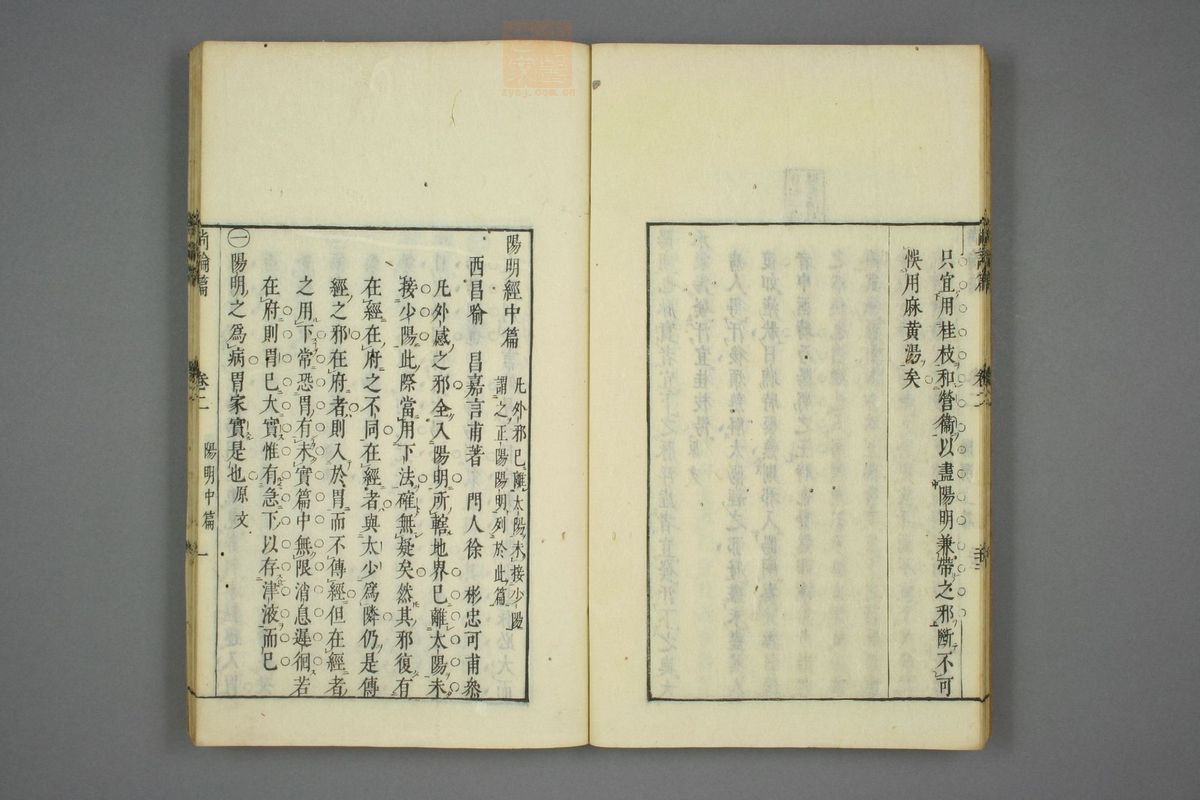 只宜用桂枝和營衛以盡陽明兼帶之邪斷不可
悞用麻黃湯矣
卷二
陽明經中篇
凡外邪已離太陽未接少陽
謂之正陽陽明列於此篇
西昌喻 昌嘉言甫著 門人徐 彬忠可甫叅
凡外感之邪全入陽明所轄地界已離太陽未
接少陽此際當用下法確無疑矣然其邪復有
在經在府之不同在經者與太少為隣仍是傳
經之邪在府者則入於胃而不傳經但在經者
之用下常恐胃有未實篇中無限消息遲徊若
在府則胃已大實惟有急下以存津液而已
㊀陽明之為病胃家實是也原文
尚論篇 卷二 陽明中篇 一
zysj.com.cn